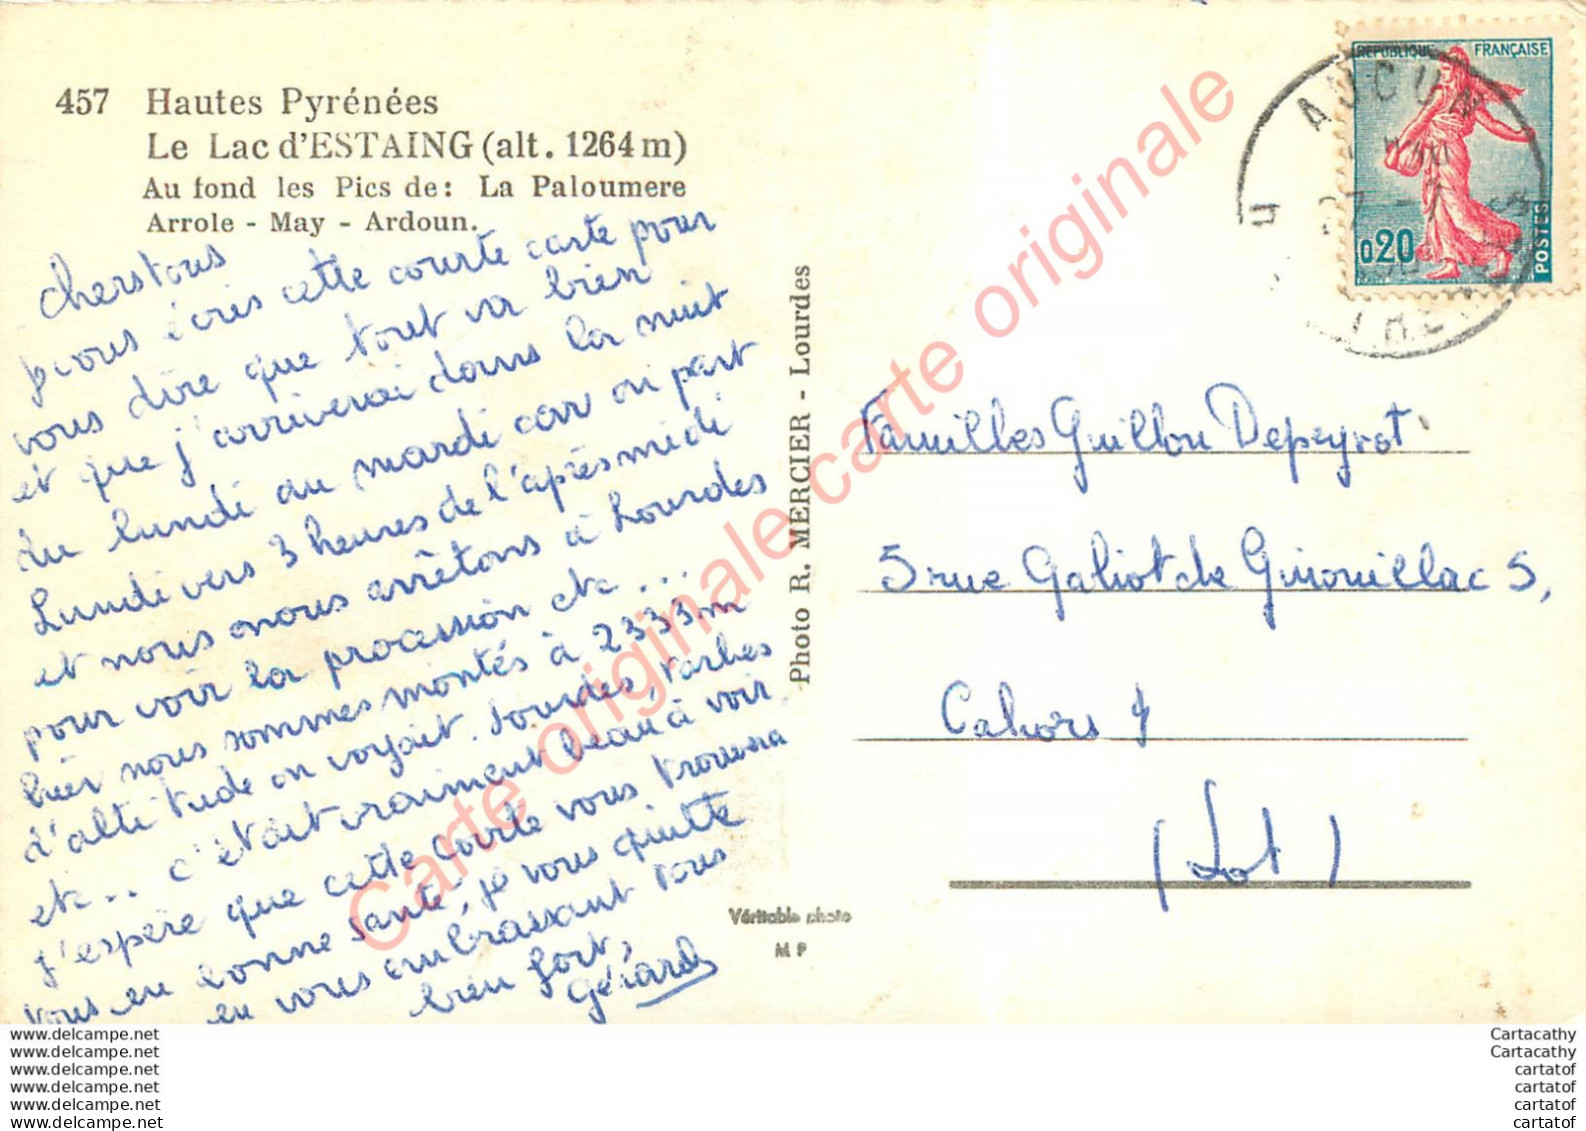 457 Hautes Pyrénées
Le Lac d'ESTAING (alt. 1264 m)
Au fond les Pics de : La Paloumere
Arrole - May - Ardoun.
chers tous
je vous écris cette courte carte pour
vous dire que tout va bien
et que j'arriverai dans la nuit
du lundi au mardi car on part
Lundi vers 3 heures de l'après midi
et nous nous arrêtons à Lourdes
pour voir la procession etc...
hier nous sommes montés à 2333m
d'altitude on voyait Lourdes, Tarbes
etc... c'était vraiment beau à voir
J'espère que cette courte vous trouvera
vous en bonne santé, je vous quitte
en vous embrassant tous
bien fort,
Gérard
Photo R. MERCIER - Lourdes
Véritable photo
M P
REPUBLIQUE FRANÇAISE
0,20
POSTES
AUCUN
Familles Guillou Depeyrot
5 rue Galiot de Ginouillac 5,
Cahors
(Lot)
Carte originale carte originale carte originale
www.delcampe.net
www.delcampe.net
www.delcampe.net
www.delcampe.net
www.delcampe.net
www.delcampe.net
Cartacathy
Cartacathy
cartatof
cartatof
cartatof
cartatof